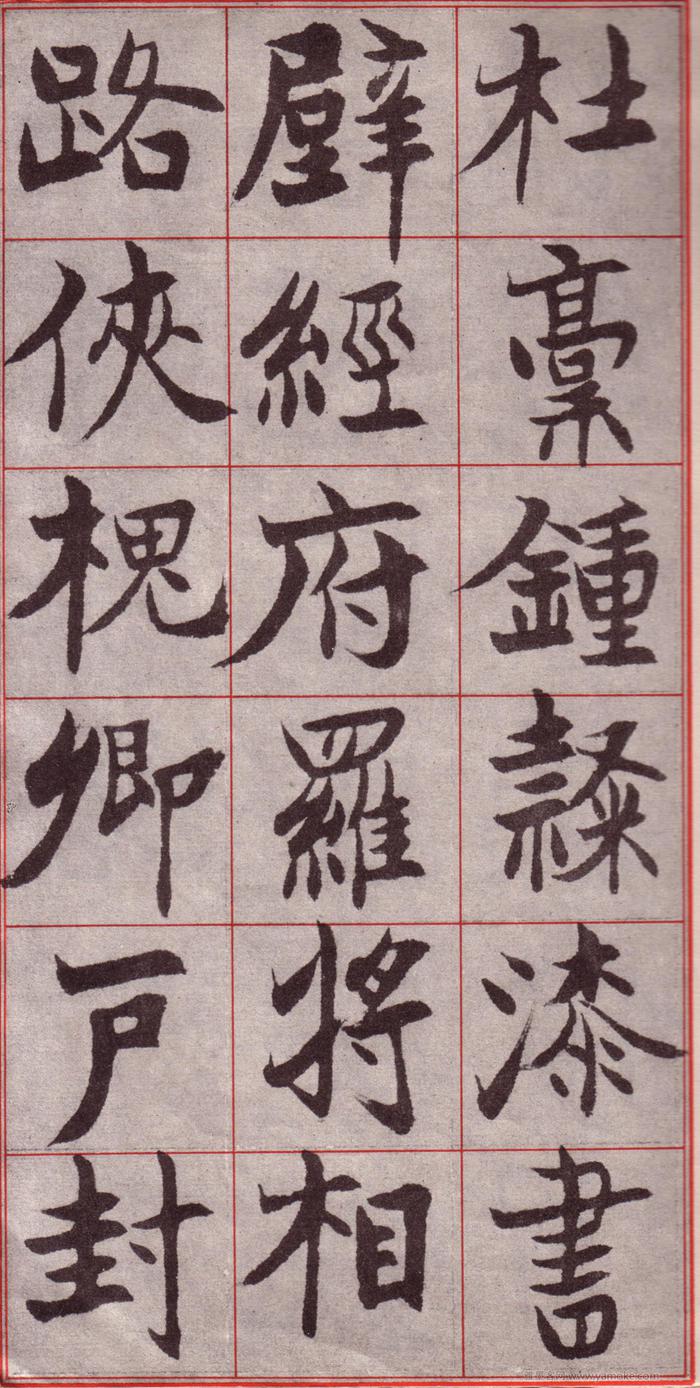 杜稾鍾隸漆書
壁經府羅將相
路俠槐卿戶封
www.yamoke.com